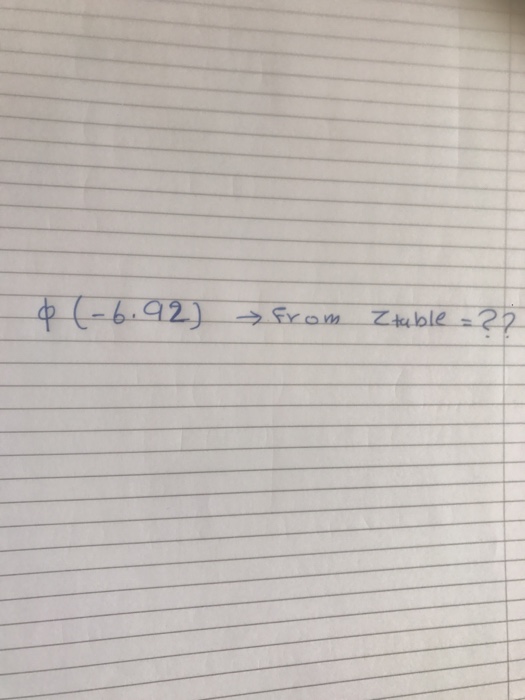 φ (-6.92) → From Ztable = ??